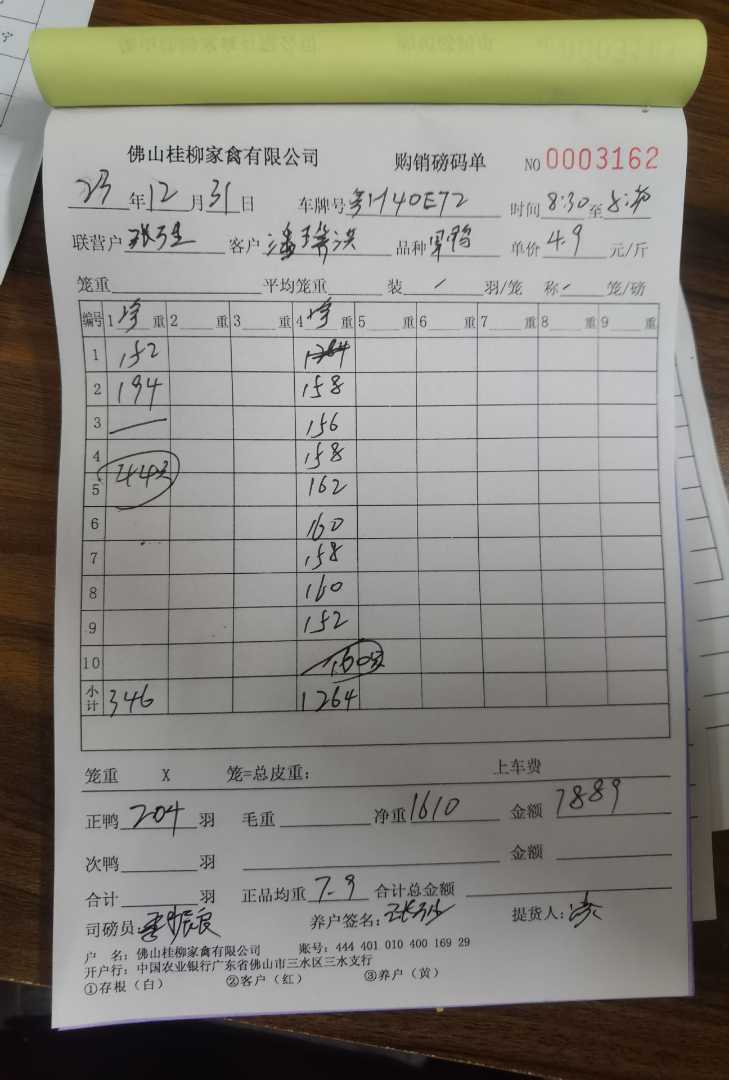 佛山桂柳家禽有限公司 购销磅码单 NO 0003162
23年12月31日 车牌号 40E72 时间 8:30 至
联营户 客户 品种 单价 4.9 元/斤
笼重 平均笼重 装 / 羽/笼 称 / 笼/磅
编号 1 净 重 2 重 3 重 4 净 重 5 重 6 重 7 重 8 重 9 重
1 152
2 194 158
3 — 156
4 158
5 443 162
6 160
7 158
8 160
9 152
10
小计 346 1264
笼重 X 笼=总皮重: 上车费
正鸭 204 羽 毛重 净重 1610 金额 7889
次鸭 羽 金额
合计 羽 正品均重 7.9 合计总金额
司磅员: 养户签名: 提货人:
户 名: 佛山桂柳家禽有限公司 账号: 444 401 010 400 169 29
开户行: 中国农业银行广东省佛山市三水区三水支行
①存根（白） ②客户（红） ③养户（黄）